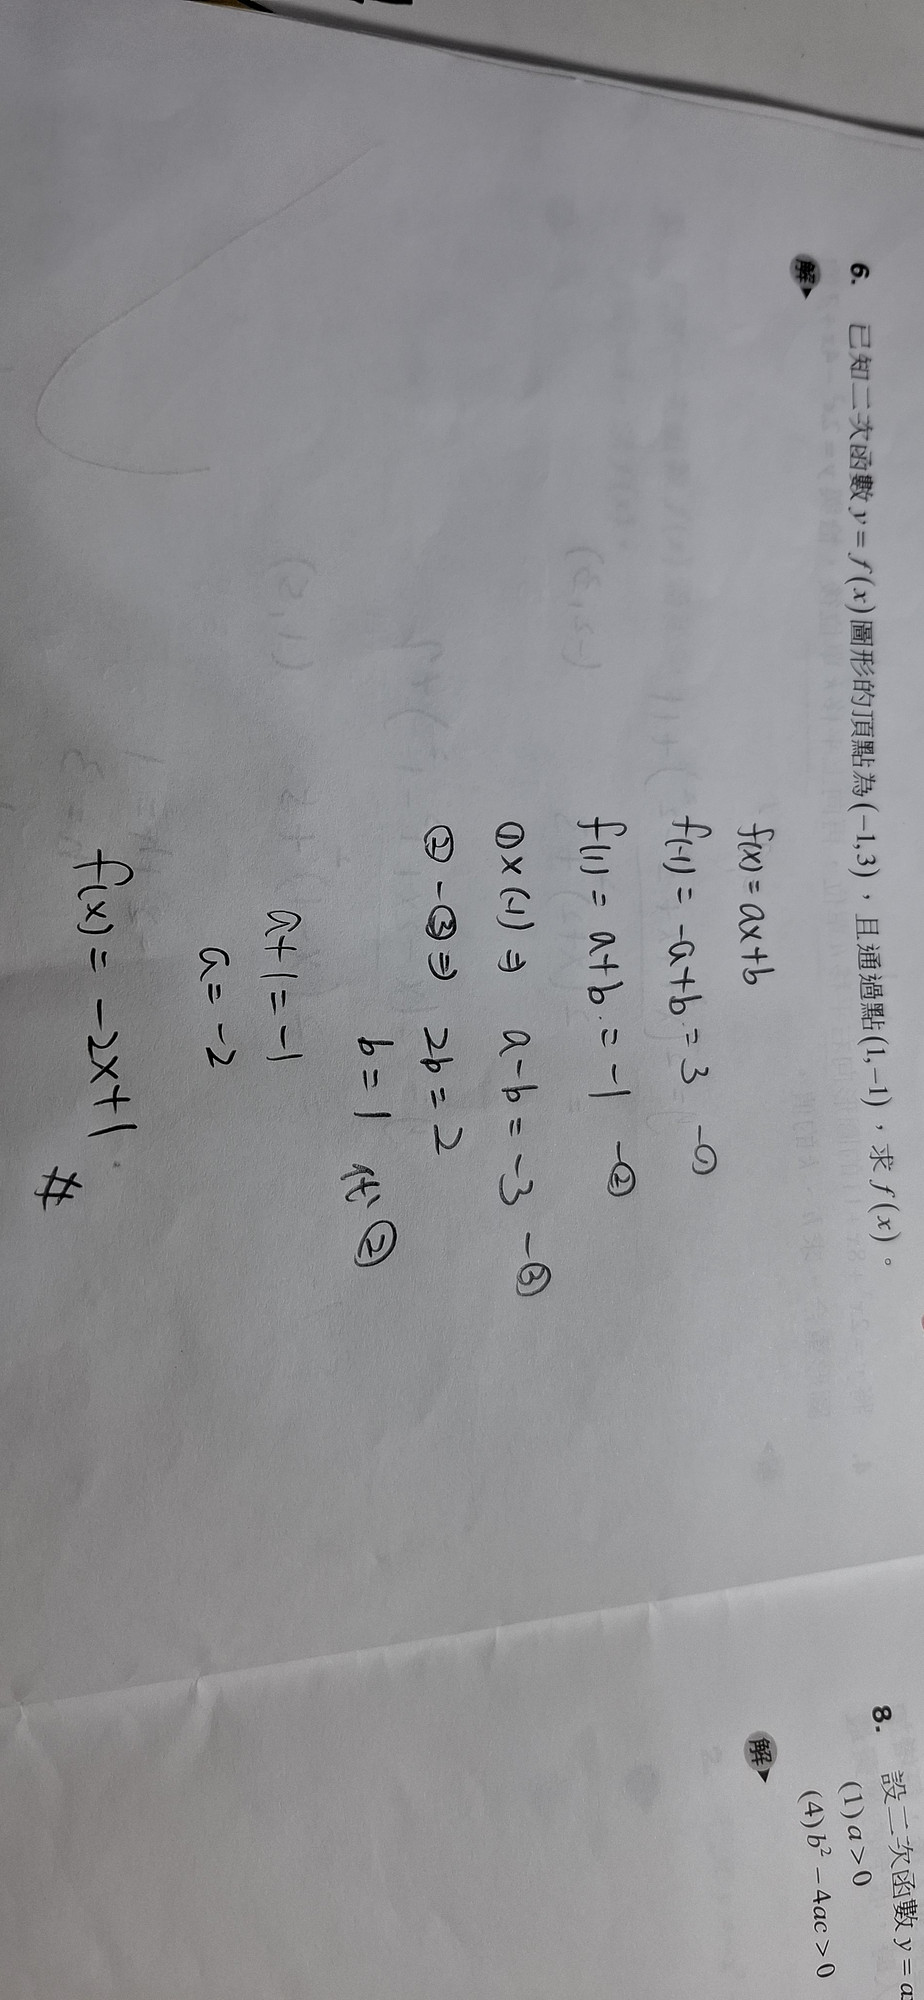 6. 已知二次函數 y = f(x) 圖形的頂點為(−1,3)，且通過點(1,−1)，求 f(x)。
解
f(x) = ax+b
f(-1) = -a+b = 3 -①
f(1) = a+b = -1 -②
①×(-1) ⇒ a-b = -3 -③
②-③ ⇒ 2b = 2
b = 1 代②
a+1 = -1
a = -2
f(x) = -2x+1 #
8. 設二次函數 y = a
(1) a > 0
(4) b² − 4ac > 0
解